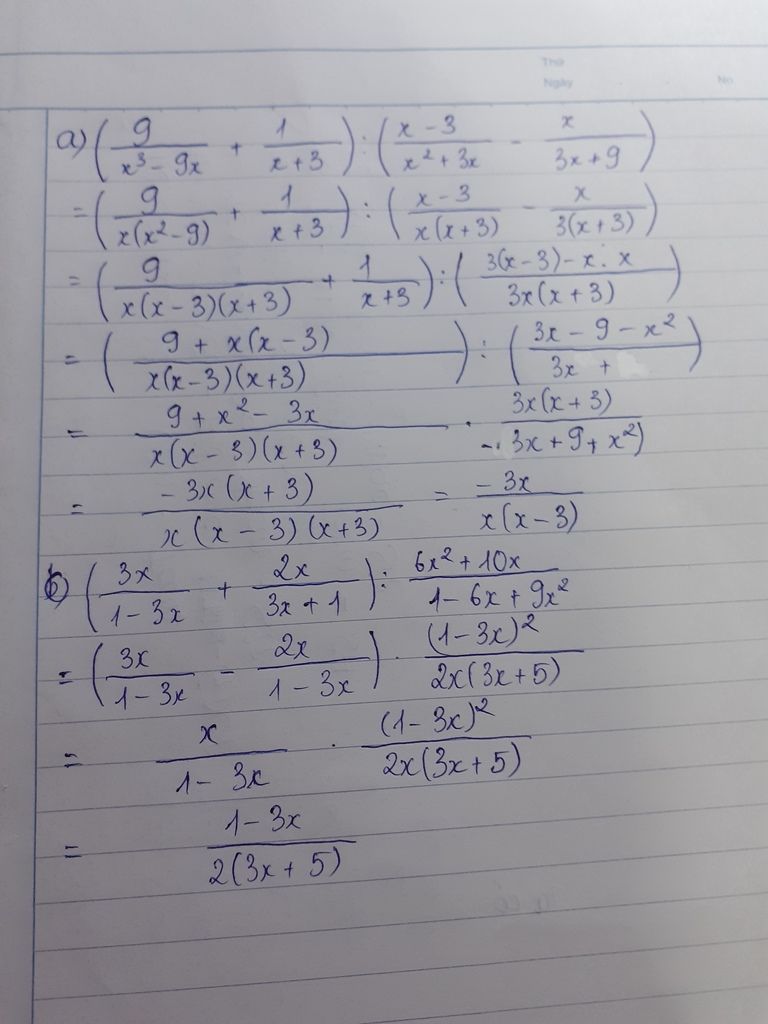 Thứ
Ngày No
a) (9/(x³ - 9x) + 1/(x + 3)) : ((x - 3)/(x² + 3x) - x/(3x + 9))
= (9/(x(x² - 9)) + 1/(x + 3)) : ((x - 3)/(x(x + 3)) - x/(3(x + 3)))
= (9/(x(x - 3)(x + 3)) + 1/(x + 3)) : ((3(x - 3) - x . x)/(3x(x + 3)))
= ((9 + x(x - 3))/(x(x - 3)(x + 3))) : ((3x - 9 - x²)/(3x +))
= (9 + x² - 3x)/(x(x - 3)(x + 3)) . (3x(x + 3))/(-. 3x + 9 + x²)
= (-3x(x + 3))/(x(x - 3)(x + 3)) = (-3x)/(x(x - 3))
b) (3x/(1 - 3x) + 2x/(3x + 1)) : (6x² + 10x)/(1 - 6x + 9x²)
= (3x/(1 - 3x) - 2x/(1 - 3x)) . (1 - 3x)²/(2x(3x + 5))
= x/(1 - 3x) . (1 - 3x)²/(2x(3x + 5))
= (1 - 3x)/(2(3x + 5))